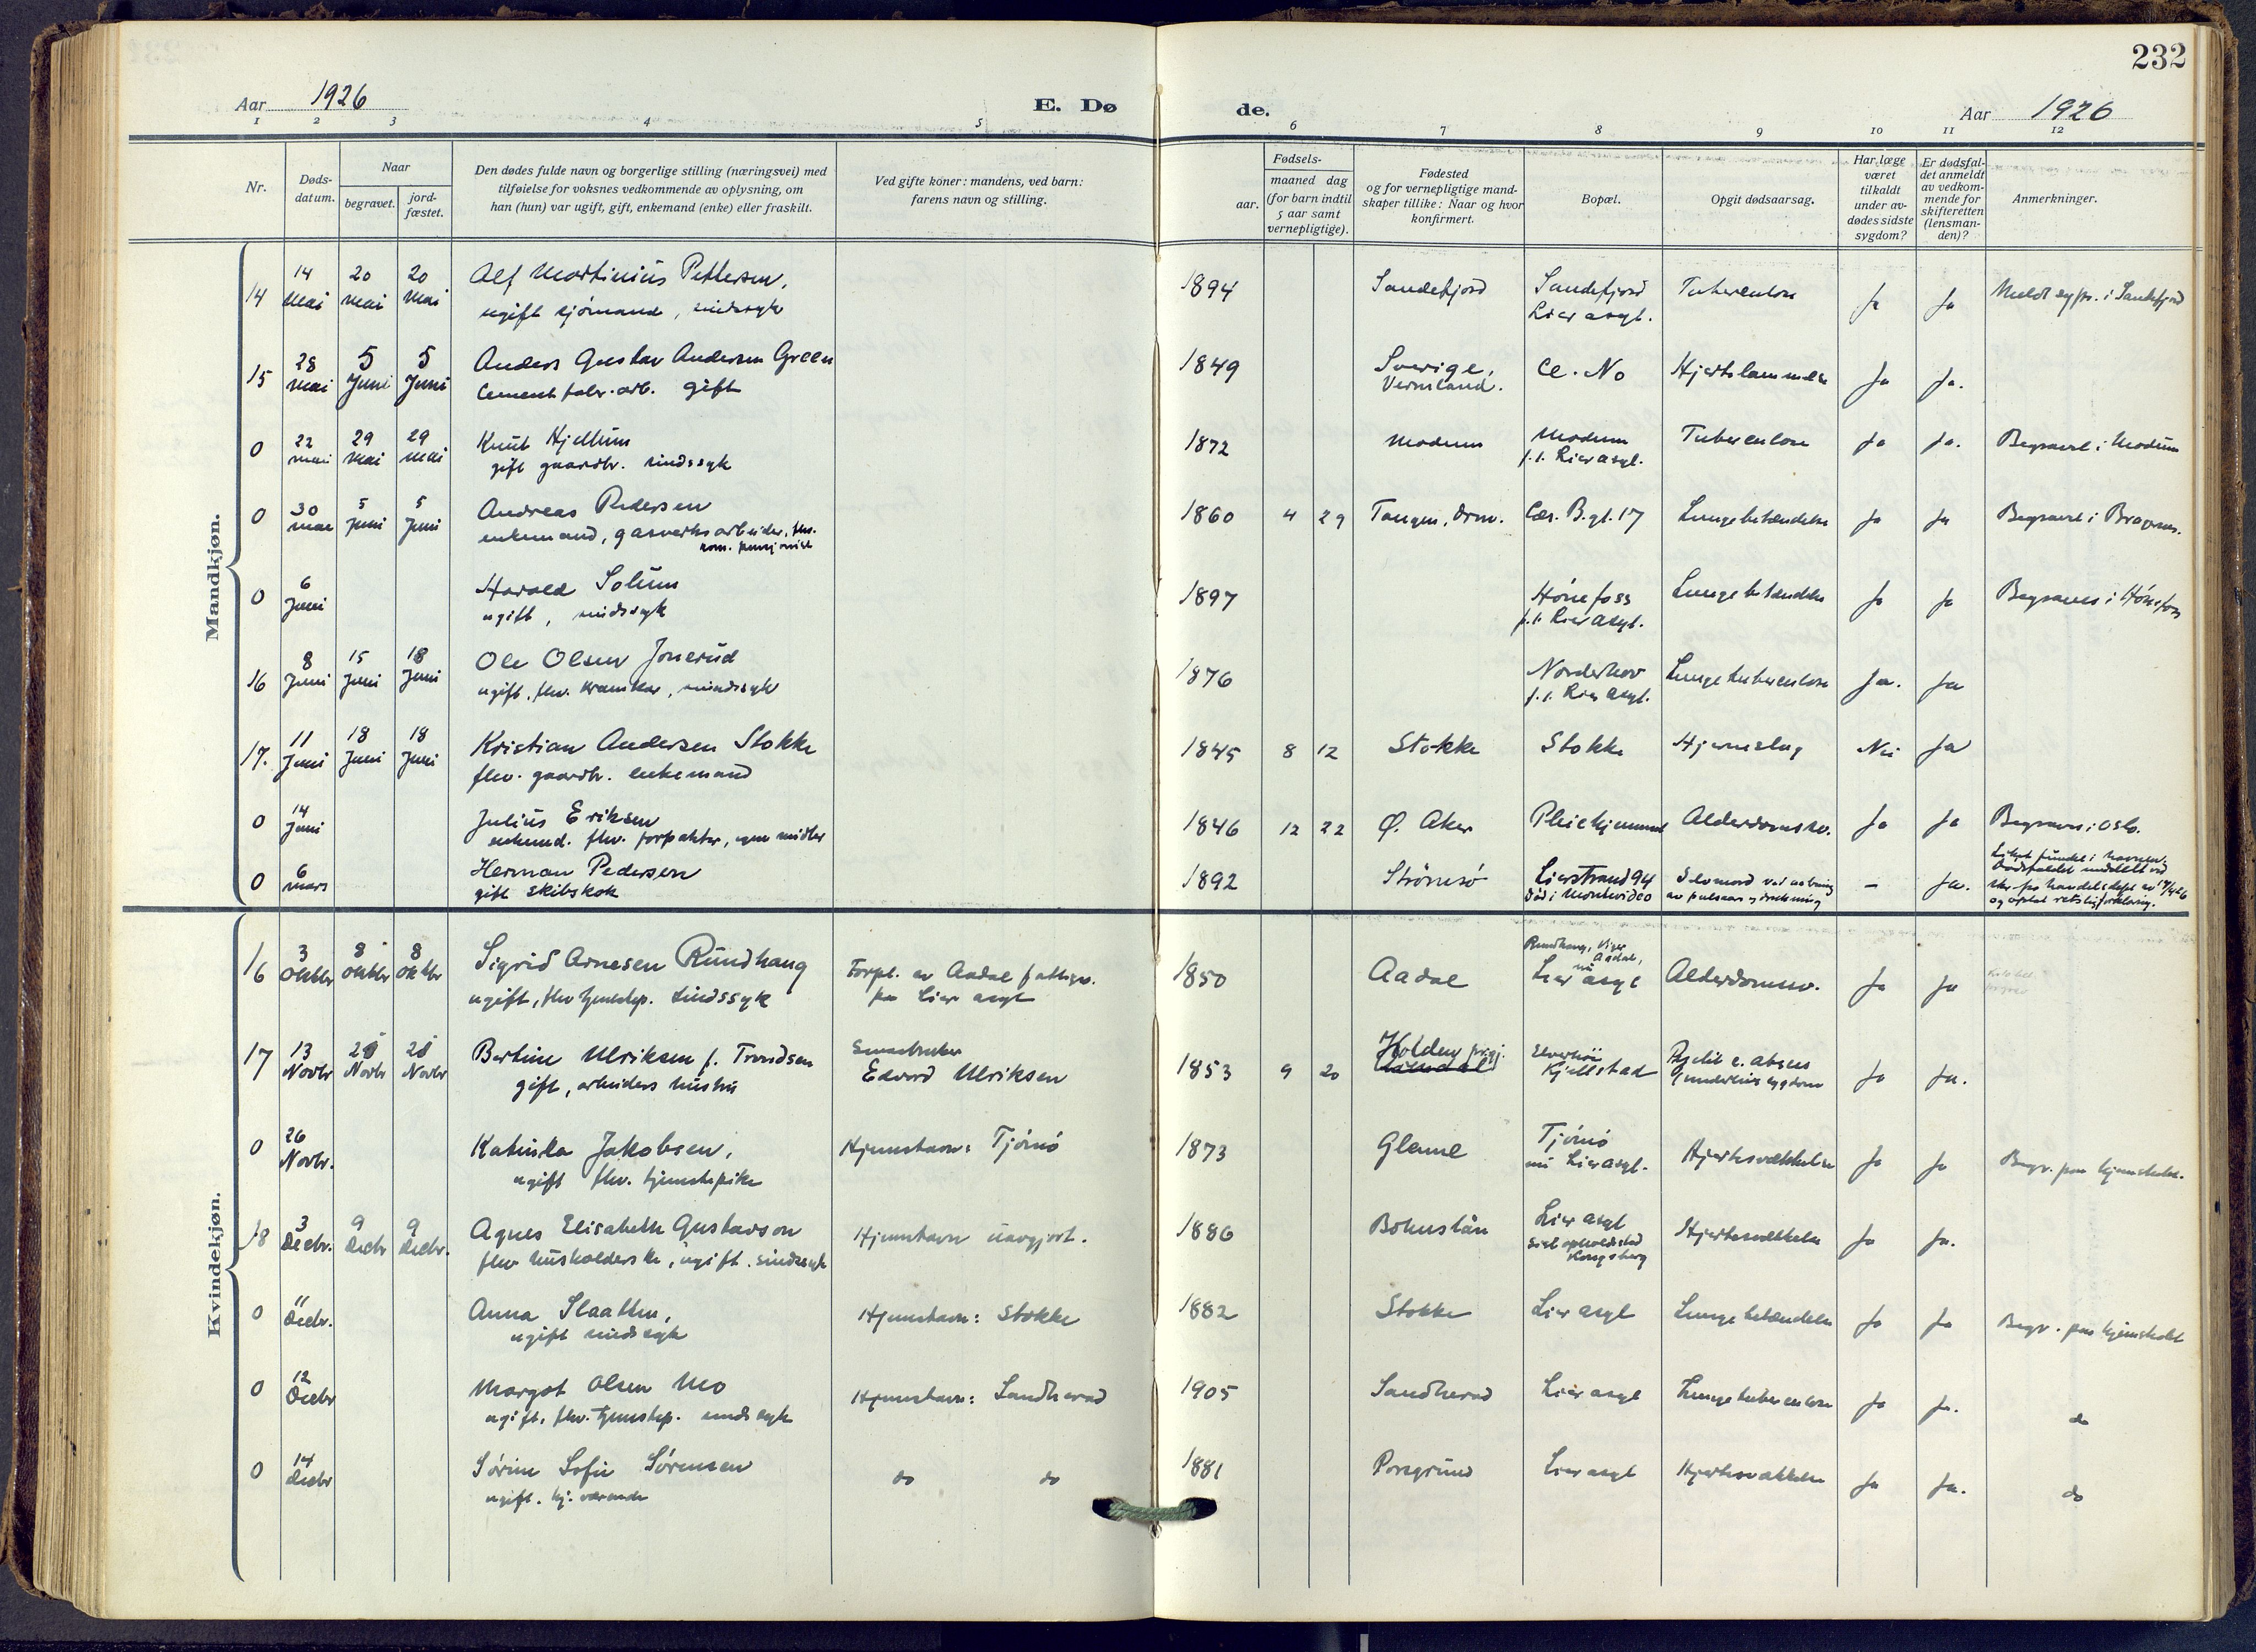 232
Aar 1926
E. Dø
de.
Aar 1926
1 2 3 4 5 6 7 8 9 10 11 12
Nr.
Døds-
datum.
Naar
begravet.
jord-
fæstet.
Den dødes fulde navn og borgerlige stilling (næringsvei) med
tilføielse for voksnes vedkommende av oplysning, om
han (hun) var ugift, gift, enkemand (enke) eller fraskilt.
Ved gifte koner: mandens, ved barn:
farens navn og stilling.
aar.
Fødsels-
maaned dag
(for barn indtil
5 aar samt
vernepligtige).
Fødested
og for vernepligtige mand-
skaper tillike: Naar og hvor
konfirmert.
Bopæl.
Opgit dødsaarsag.
Har læge
været
tilkaldt
under av-
dødes sidste
sygdom?
Er dødsfal-
det anmeldt
av vedkom-
mende for
skifteretten
(lensman-
den)?
Anmerkninger.
Mandkjøn.
14 14 Mai 20 Mai 20 Mai Alf Martinius Pettersen, 1894 Sandefjord Sandefjord Tuberculose Ja Ja i Sandefjord
ugift sjømand, sindssyk Lier asyl.
15 28 Mai 5 Juni 5 Juni Anders Gustav Andersen Green 1849 Sverige, Cl. No Hjertelammelse Ja Ja.
Cement fabr. arb. gift Vermland.
0 22 mai 29 Mai 29 Mai Knut Hjellum 1872 Modum Modum Tuberculose Ja Ja. Begravet i Modum
gift gaardbr. sindssyk f. t. Lier asyl.
0 30 mai 5 Juni 5 Juni Andreas Pedersen 1860 4 29 Tangen, Drm. Cæs. B. gt. 17 Lungebetændelse Ja Ja Begravet i Bragernes.
enkemand, gasverksarbeider, fhv.
kom. pensjonist
0 6 Juni Harald Solum 1897 Hønefoss Lungebetændelse Ja Ja Begraves i Hønefoss
ugift, sindssyk f. t. Lier asyl.
16 8 Juni 15 Juni 18 Juni Ole Olsen Jonerud 1876 Norderhov Lungetuberculose Ja. Ja
ugift, fhv. kramkar, sindssyk f. t. Lier asyl.
17. 11 Juni 18 Juni 18 Juni Kristian Andersen Stokke 1845 8 12 Stokke Stokke Hjerneslag Nei Ja
fhv. gaardbr. enkemand
0 14 Juni Julius Eriksen 1846 12 22 Ø. Aker Pleiehjemmet Alderdomssv. Ja Ja Begraves i Oslo.
enkemd. fhv. forpakter, egne midler
0 6 mars Herman Pedersen 1892 Strømsø Lierstrand 94 Selvmord ved aapning – Ja. Liket fundet i havnen.
gift skibskok Død i Montevideo av pulsaare og drukning Dødsfaldet meddelt ved
skr. fra handelsdept. av 17/4 26
og optat retslig forklaring.
Kvindekjøn.
16 3 Oktbr 8 Oktbr 8 Oktbr Sigrid Arnesen Rundhaug Forpl. av Aadal fattigv. 1850 Aadal Rundhaug, Viger Aadal, nu Lier asyl Alderdomssv. Ja Ja
ugift, fhv tjenestep. sindssyk paa Lier asyl
17 13 Novbr 20 Novbr 20 Novbr Bertine Ulriksen f. Trondsen Edvard Ulriksen 1853 9 20 Holden prgj. Kjellstad Ja Ja.
gift, arbeiders hustru
0 26 Novbr. Katinka Jakobsen, Hjemstavn: Tjømø 1873 Glemel Tjømø Hjertesvækkelse Ja Ja Begr. paa hjemstedet.
ugift fhv. tjenestepike nu Lier asyl.
18 3 Decbr. 9 Decbr 9 Decbr. Agnes Elisabeth Gustavson Hjemstavn uavgjort. 1886 Bohuslän Lier asyl Hjertesvækkelse Ja Ja.
fhv husholderske, ugift. sindssyk sidst opholdssted
Kongsberg
0 11 Decbr. Anna Slaatten, Hjemstavn: Stokke 1882 Stokke Lier asyl Lungebetændelse Ja Ja Begr. paa hjemstedet
ugift sindssyk
0 12 Decbr Margot Olsen Mo Hjemstavn: Sandherad 1905 Sandherad Lier asyl Lungetuberculose Ja Ja. do
ugift, fhv. tjenestep. sindssyk
0 14 Decbr Sørine Sofie Sørensen do do 1881 Porsgrund Lier asyl Hjertesvækkelse Ja Ja. do
ugift. hj. værende